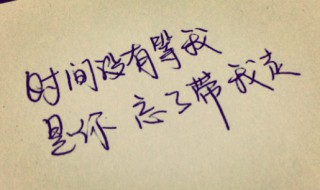 时间没有等我
是你 忘了带我走